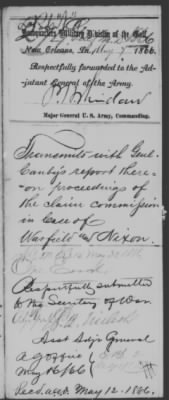 Headquarters Military Division of the Gulf,
New Orleans, La., May 7, 1866.
Respectfully forwarded to the Ad-
jutant General of the Army.
P. H. Sheridan
Major General U. S. Army, Commanding.
Transmits with Genl.
Canby's report there-
on proceedings of
the claim commission
in case of
Warfield and Nixon.
Respectfully submitted
to the Secretary of War.
Asst Adj't General
A G Office
May 16/66
Recd. May 12 - 1866.